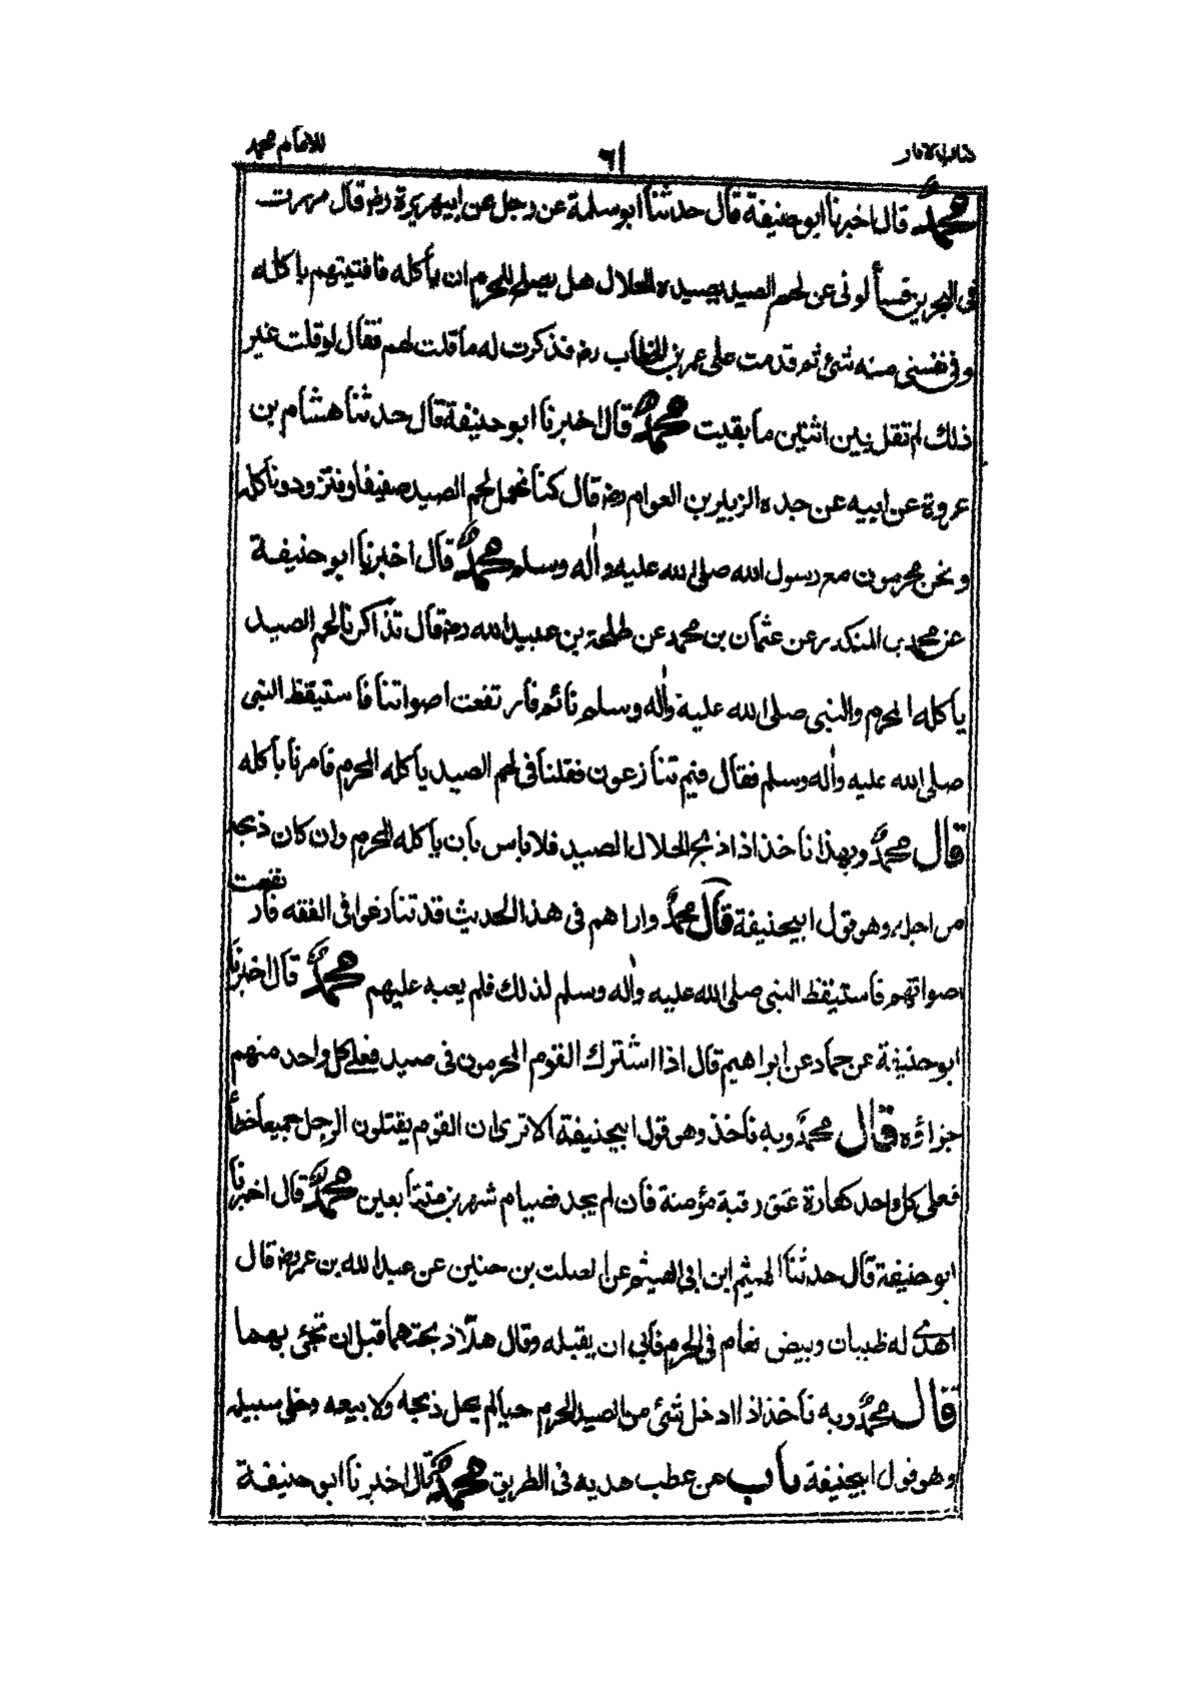 كتاب الآثار ٦١ للامام محمد
محمد قال اخبرنا ابو حنيفة قال حدثنا ابو سلمة عن رجل عن ابي هريرة رض قال مررت
فى البحرين فسألونى عن لحم الصيد يصيده الحلال هل يصلح للمحرم ان يأكله فافتيتهم باكله
وفى نفسى منه شئ ثم قدمت على عمر بن الخطاب رض فذكرت له ما قلت لهم فقال لو قلت غير
ذلك لم تقل بين اثنين ما بقيت محمد قال اخبرنا ابو حنيفة قال حدثنا هشام بن
عروة عن ابيه عن جده الزبير بن العوام رض قال كنا نحمل لحم الصيد صفيفا ونتزود ونأكله
ونحن محرمون مع رسول الله صلى الله عليه وآله وسلم محمد قال اخبرنا ابو حنيفة
عن محمد بن المنكدر عن عثمان بن محمد عن طلحة بن عبيد الله رض قال تذاكرنا لحم الصيد
يأكله المحرم والنبى صلى الله عليه وآله وسلم نائم فارتفعت اصواتنا فاستيقظ النبى
صلى الله عليه وآله وسلم فقال فيم تنازعون فقلنا فى لحم الصيد يأكله المحرم فامرنا بأكله
قال محمد وبهذا نأخذ اذا ذبح الحلال الصيد فلا باس بان يأكله المحرم وان كان ذبحه
من اجله وهو قول ابي حنيفة قال محمد وارا هم فى هذا الحديث قد تنازعوا فى الفقه فارتفعت
اصواتهم فاستيقظ النبى صلى الله عليه وآله وسلم لذلك فلم يعبه عليهم محمد قال اخبرنا
ابو حنيفة عن حماد عن ابراهيم قال اذا اشترك القوم المحرمون فى صيد فعلى كل واحد منهم
جزاؤه قال محمد وبه نأخذ وهو قول ابي حنيفة الا ترى ان القوم يقتلون الرجل جميعا خطأ
فعلى كل واحد كفارة عتق رقبة مؤمنة فان لم يجد فصيام شهرين متتابعين محمد قال اخبرنا
ابو حنيفة قال حدثنا الهيثم ابن ابى الهيثم عن الصلت بن حنين عن عبد الله بن عمر رض قال
اهدى له ظبيان وبيض نعام فى الحرم فأبى ان يقبله وقال هلا ذبحتهما قبل ان تجئ بهما
قال محمد وبه نأخذ اذا ادخل شئ من الصيد الحرم حيا لم يحل ذبحه ولا بيعه وخلى سبيله
وهو قول ابي حنيفة باب من عطب هديه فى الطريق محمد قال اخبرنا ابو حنيفة